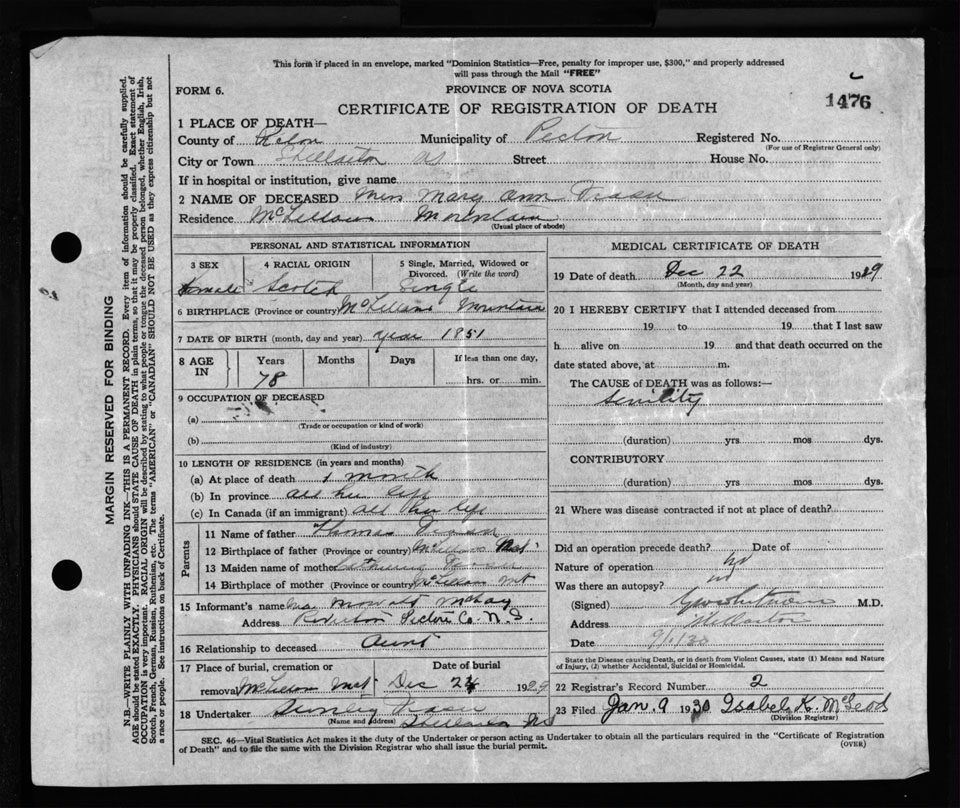 This form if placed in an envelope, marked "Dominion Statistics—Free, penalty for improper use, $300," and properly addressed
will pass through the Mail "FREE"
FORM 6.
PROVINCE OF NOVA SCOTIA
1476
CERTIFICATE OF REGISTRATION OF DEATH
1 PLACE OF DEATH—
County of Municipality of Pictou Registered No.
(For use of Registrar General only)
City or Town Stellarton NS Street House No.
If in hospital or institution, give name
2 NAME OF DECEASED Miss Mary Ann Fraser
Residence McLellans Mountain
(Usual place of abode)
PERSONAL AND STATISTICAL INFORMATION
3 SEX 4 RACIAL ORIGIN 5 Single, Married, Widowed or
Divorced. (Write the word)
Female Scotch Single
6 BIRTHPLACE (Province or country) McLellans Mountain
7 DATE OF BIRTH (month, day and year) year 1851
8 AGE IN Years Months Days If less than one day,
78 hrs. or min.
9 OCCUPATION OF DECEASED
(a)
(Trade or occupation or kind of work)
(b)
(Kind of industry)
10 LENGTH OF RESIDENCE (in years and months)
(a) At place of death 1 month
(b) In province all her life
(c) In Canada (if an immigrant) all her life
Parents
11 Name of father Thomas Fraser
12 Birthplace of father (Province or country) McLellans Mt
13 Maiden name of mother Catherine Fraser
14 Birthplace of mother (Province or country) McLellan Mt
15 Informant's name McKay
Address Pictou Co. N.S.
16 Relationship to deceased Aunt
17 Place of burial, cremation or Date of burial
removal McLellan Mt Dec 24 1929
18 Undertaker Fraser
(Name and Address) Stellarton NS
MEDICAL CERTIFICATE OF DEATH
19 Date of death Dec 22 1929
(Month, day and year)
20 I HEREBY CERTIFY that I attended deceased from
19 to 19 that I last saw
h alive on 19 and that death occurred on the
date stated above, at m.
The CAUSE of DEATH was as follows:—
Senility
(duration) yrs mos dys.
CONTRIBUTORY
(duration) yrs mos dys.
21 Where was disease contracted if not at place of death?
Did an operation precede death? Date of
Nature of operation no
Was there an autopsy? no
(Signed) M.D.
Address Stellarton
Date 9/1/30
State the Disease causing Death, or in death from Violent Causes, state (1) Means and Nature
of Injury, (2) whether Accidental, Suicidal or Homicidal.
22 Registrar's Record Number 2
23 Filed Jan. 9 1930 Isabel K. McLeod
(Division Registrar)
SEC. 46—Vital Statistics Act makes it the duty of the Undertaker or person acting as Undertaker to obtain all the particulars required in the "Certificate of Registration
of Death" and to file the same with the Division Registrar who shall issue the burial permit.
(OVER)
MARGIN RESERVED FOR BINDING
N.B.—WRITE PLAINLY WITH UNFADING INK—THIS IS A PERMANENT RECORD. Every item of information should be carefully supplied.
AGE should be stated EXACTLY. PHYSICIANS should STATE CAUSE OF DEATH in plain terms, so that it may be properly classified. Exact statement of
OCCUPATION is very important. RACIAL ORIGIN will be described by stating to what people or tongue the deceased person belonged, whether English, Irish,
Scotch, French, German, Russian, Ruthenian, etc. The terms "AMERICAN" or "CANADIAN" SHOULD NOT BE USED as they express citizenship but not
a race or people. See instructions on back of Certificate.